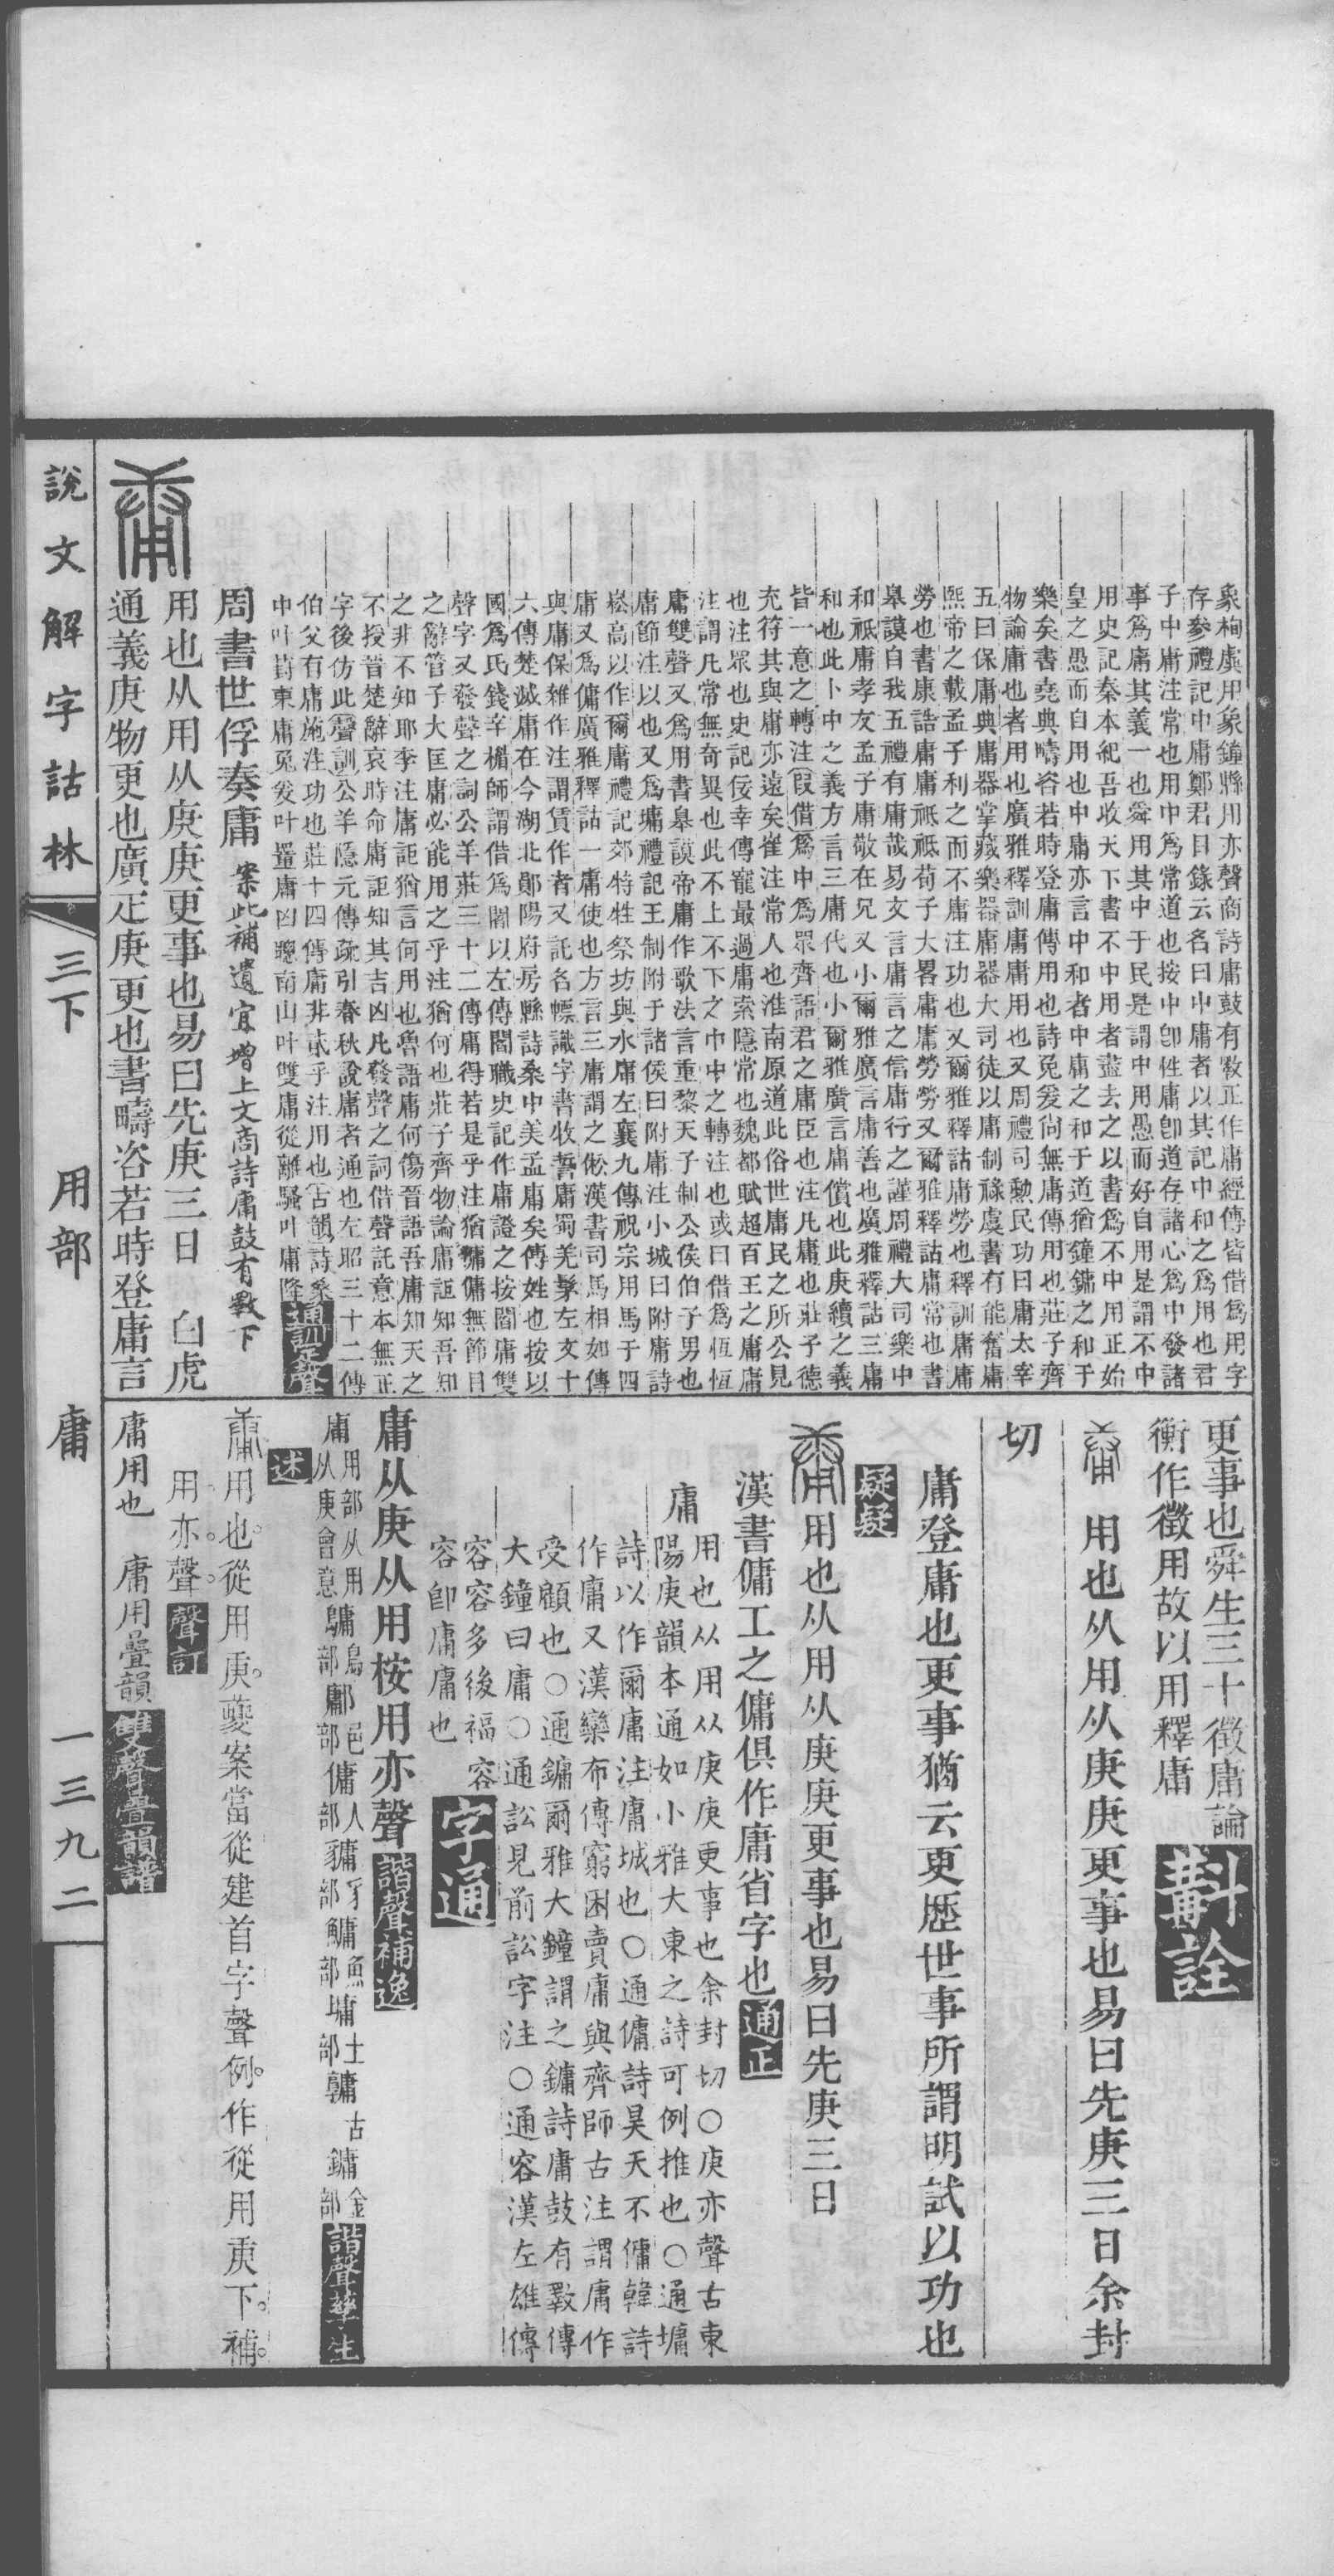 象栒虡用象鐘縣用亦聲商詩庸鼓有斁正作庸經傳皆借爲用字
存參禮記中庸鄭君目錄云名曰中庸者以其記中和之爲用也君
子中庸注常也用中爲常道也按中卽性庸卽道存諸心爲中發諸
事爲庸其義一也舜用其中于民是謂中用愚而好自用是謂不中
用史記秦本紀吾收天下書不中用者盡去之以書爲不中用正始
皇之愚而自用也中庸亦言中和者中庸之和于道猶鐘鏞之和于
樂矣書堯典疇咨若時登庸傳用也詩兔爰尙無庸傳用也莊子齊
物論庸也者用也廣雅釋訓庸庸用也又周禮司勲民功曰庸太宰
五曰保庸典庸器掌藏樂器庸器大司徒以庸制祿虞書有能奮庸
熙帝之載孟子利之而不庸注功也又爾雅釋詁庸勞也釋訓庸庸
勞也書康誥庸庸祗祗荀子大畧庸庸勞勞又爾雅釋詁庸常也書
皋謨自我五禮有庸哉易文言庸言之信庸行之謹周禮大司樂中
和祗庸孝友孟子庸敬在兄又小爾雅廣言庸善也廣雅釋詁三庸
和也此卜中之義方言三庸代也小爾雅廣言庸償也此庚續之義
皆一意之轉注叚借爲中爲眾齊語君之庸臣也注凡庸也莊子德
充符其與庸亦遠矣崔注常人也淮南原道此俗世庸民之所公見
也注眾也史記佞幸傳寵最過庸索隱常也魏都賦超百王之庸庸
注謂凡常無奇異也此不上不下之中中之轉注也或曰借爲恆恆
庸雙聲又爲用書皋謨帝庸作歌法言重黎天子制公侯伯子男也
庸節注以也又爲墉禮記王制附于諸侯曰附庸注小城曰附庸詩
崧高以作爾庸禮記郊特牲祭坊與水庸左襄九傳祝宗用馬于四
庸又爲傭廣雅釋詁一庸使也方言三庸謂之倯漢書司馬相如傳
與庸保雜作注謂賃作者又託名幖識字書牧誓庸蜀羌髳左文十
六傳楚滅庸在今湖北鄖陽府房縣詩桑中美孟庸矣傳姓也按以
國爲氏錢辛楣師謂借爲閻以左傳閻職史記作庸證之按閻庸雙
聲字又發聲之詞公羊莊三十二傳庸得若是乎注猶傭傭無節目
之辭管子大匡庸必能用之乎注猶何也莊子齊物論庸詎知吾知
之非不知耶李注庸詎猶言何用也魯語庸何傷晉語吾庸知天之
不授晉楚辭哀時命庸詎知其吉凶凡發聲之詞借聲託意本無正
字後仿此聲訓公羊隱元傳疏引春秋說庸者通也左昭三十二傳
伯父有庸施注功也莊十四傳庸非貳乎注用也古韻詩桑
中叶葑東庸兔爰叶罿庸凶聰南山叶雙庸從離騷叶庸降通訓定聲
周書世俘奏庸案此補遺宜增上文商詩庸鼓有斁下
用也从用从庚庚更事也易曰先庚三日 白虎
通義庚物更也廣疋庚更也書疇咨若時登庸言
更事也舜生三十徵庸論
衡作徵用故以用釋庸斠詮
用也从用从庚庚更事也易曰先庚三日余封
切
庸登庸也更事猶云更歷世事所謂明試以功也
疑疑
用也从用从庚庚更事也易曰先庚三日
漢書傭工之傭俱作庸省字也通正
庸
用也从用从庚庚更事也余封切○庚亦聲古東
陽庚韻本通如小雅大東之詩可例推也○通墉
詩以作爾庸注庸城也○通傭詩昊天不傭韓詩
作庸又漢欒布傳窮困賣庸與齊師古注謂庸作
受顧也○通鏞爾雅大鐘謂之鏞詩庸鼓有斁傳
大鐘曰庸○通訟見前訟字注○通容漢左雄傳
容容多後福容
容卽庸庸也字通
庸从庚从用桉用亦聲諧聲補逸
庸用部从用从庚會意鷛鳥部鄘邑部傭人部䝸豸部鱅魚部墉土部𩫏古鏞金部諧聲孳生述
用也從用庚夔案當從建首字聲例作從用庚下補
用亦聲聲訂
庸用也 庸用疊韻雙聲疊韻譜
說文解字詁林 三下 用部 庸 一三九二